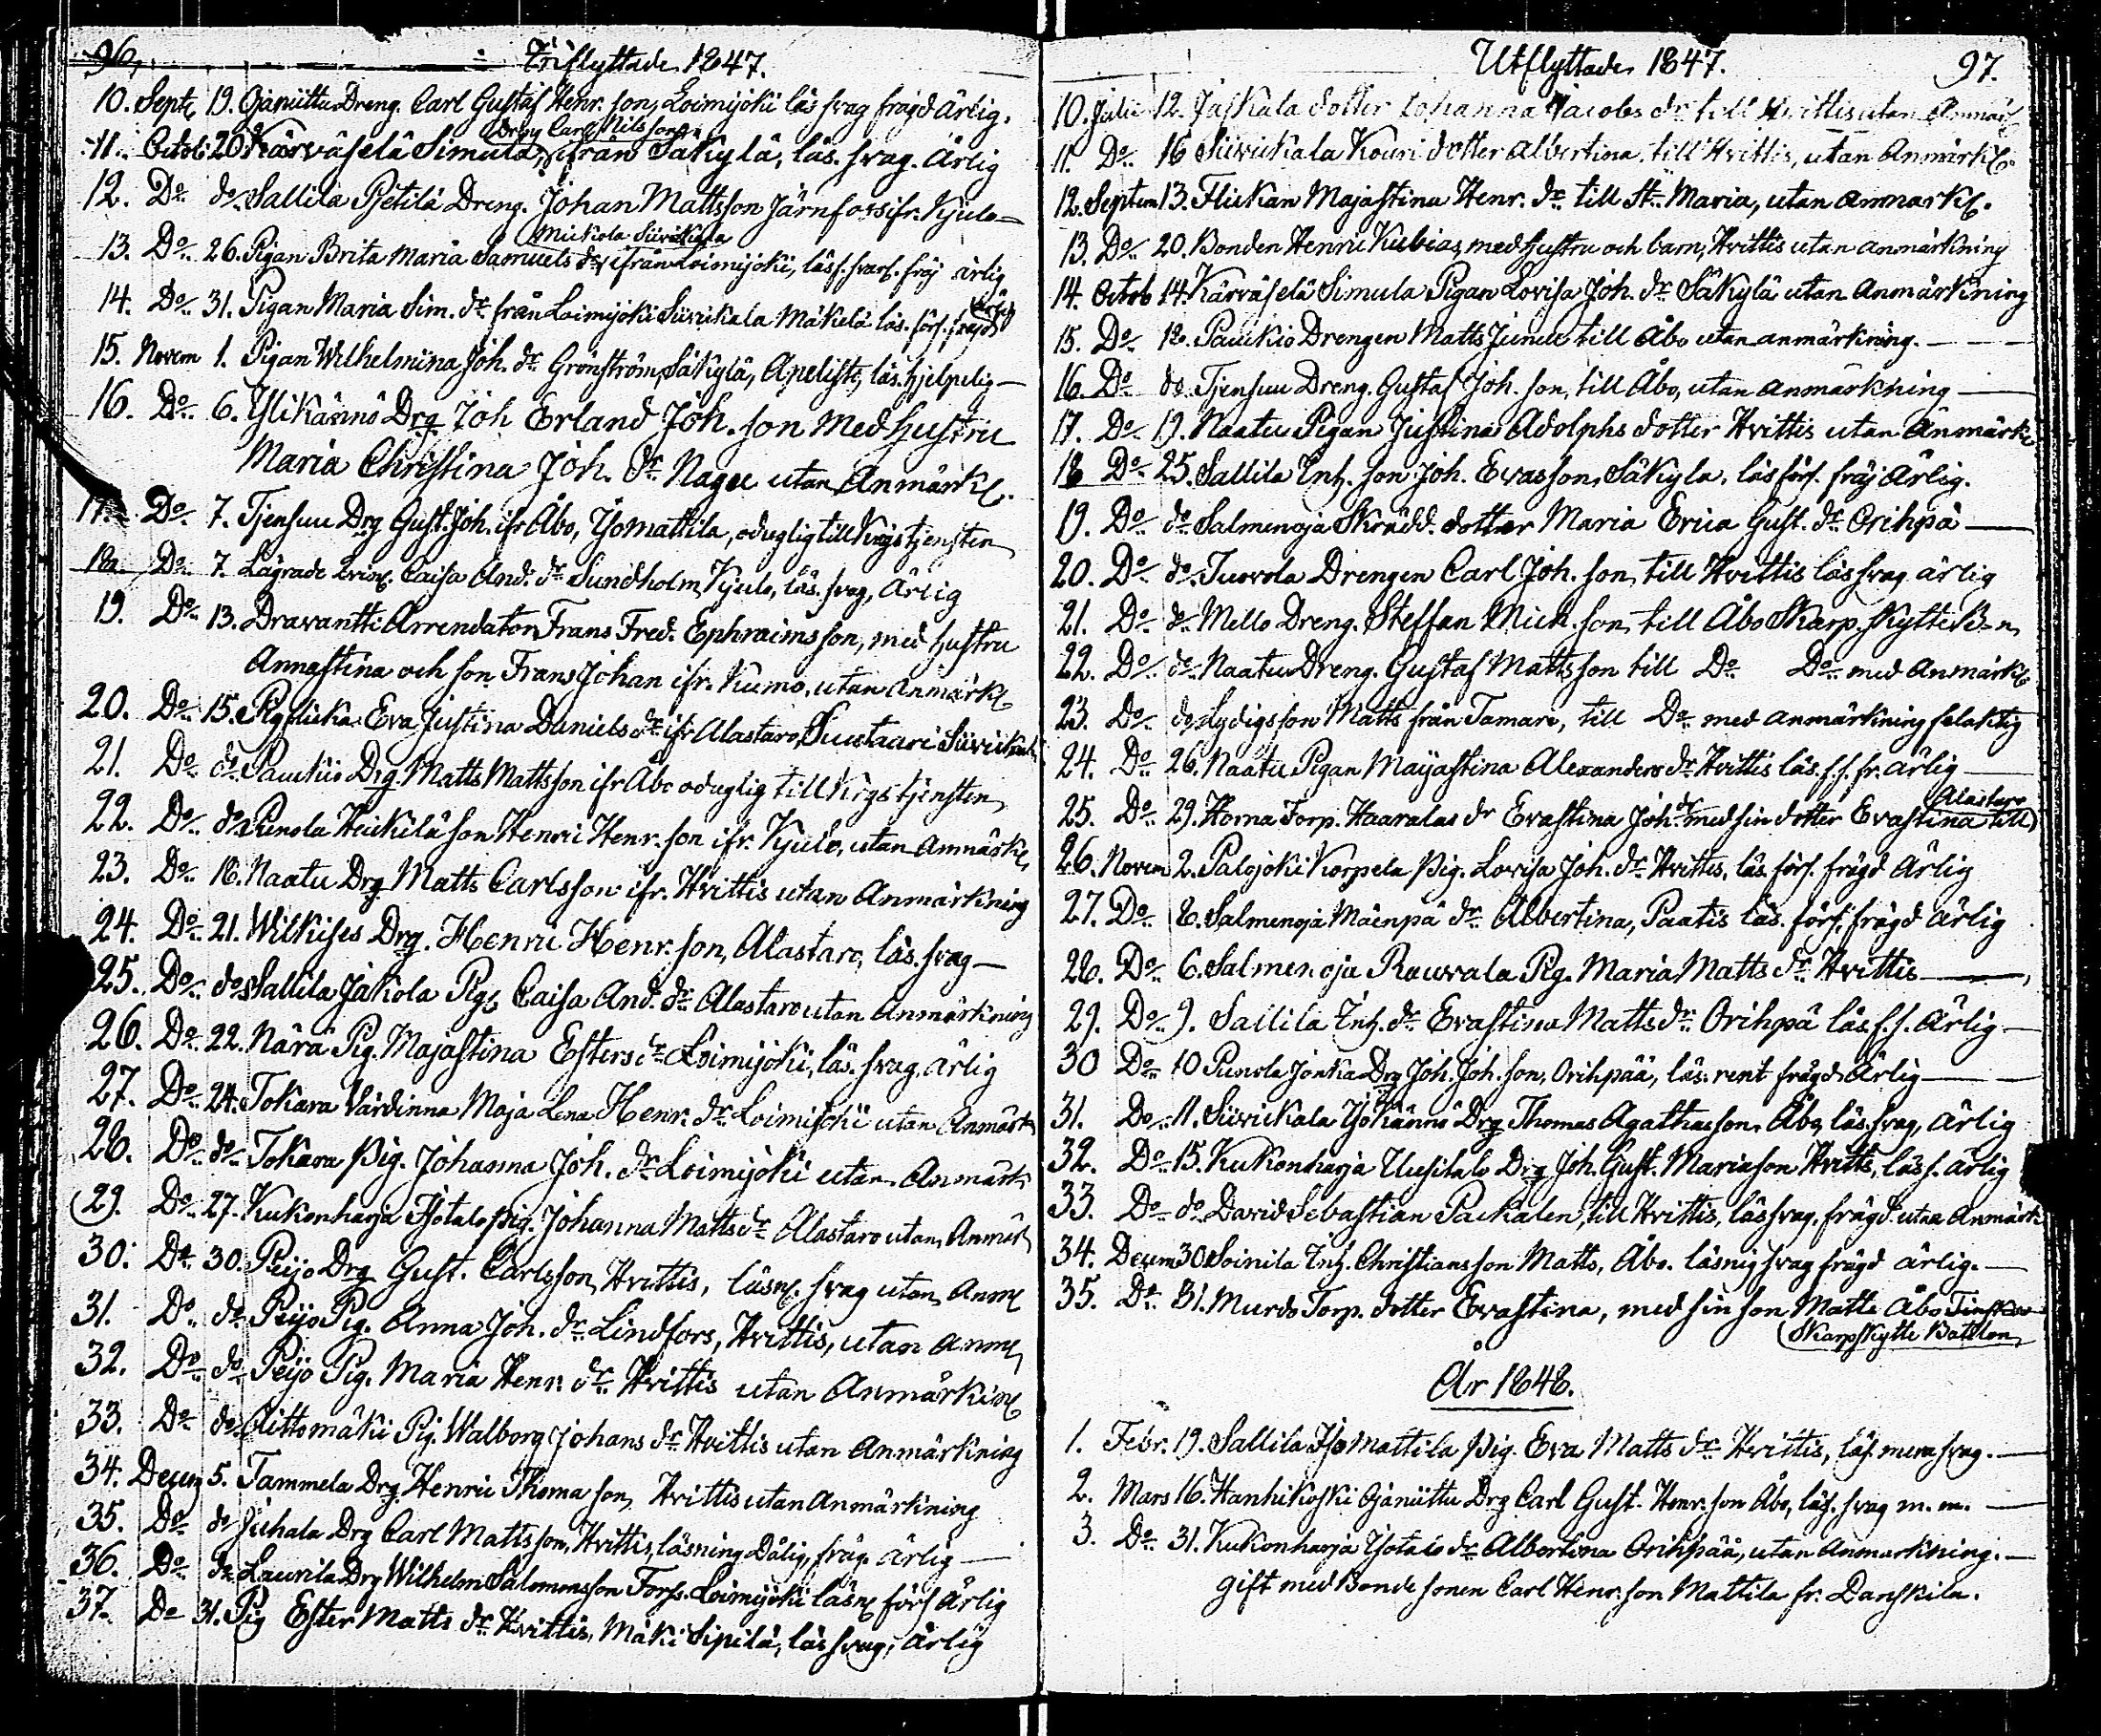 96.
Inflyttade 1847.
10. Septe 19. Ojanüttu Dreng. Carl Gustaf Henr. son, Loimijoki läs svag frägd Ärlig.
Dreng Carl Nilsson
11. Octob: 20 Kärväselä Simula, ifrån Säkylä, läs. svag. Ärlig
12. Do do Sallila Pietilä Dreng. Johan Mattsson Järnfors ifr. Kjulo —
Mickola Suvikala
13. Do 26. Pigan Brita Maria Samuels dr ifrån Loimijoki, läs. svag. fräj ärlig
14. Do 31. Pigan Maria Sim. dr från Loimijoki Suvickala Mäkelä läs. förs. frägd
ärlig
15. Novem 1. Pigan Wilhelmina Joh. dr Grönström, Säkylä, Apelisto, läs. hjelpelig —
16. Do 6. Ylikännö Drg Joh Erland Joh. son med hustru
Maria Christina Joh. dr Nagu utan Anmärk
17. Do 7. Tjensuu Drg Gust. Joh. ifr Åbo, Isomattila, oduglig till Krigstjensten
18. Do 7. Lägrade Caisa And. dr Sundholm, Kjulo, läs. svag, Ärlig
19. Do 13. Dravantti Arrendatorn Frans Fred. Ephraimsson, med hustru
Annastina och son Frans Johan ifr. Kumo, utan Anmärk
20. Do 15. Pigflicka Eva Justina Daniels dr ifr Alastaro, Suvickala
21. Do do Paukio Drg. Matts Mattsson ifr Åbo oduglig till Krigstjensten
22. Do do Punola Heickilä son Henric Henr. son ifr. Kjulo, utan Anmärk
23. Do 16. Naatu Drg Matts Carlsson ifr. Hvittis utan Anmärkning
24. Do 21. Wilkises Drg. Henric Henr. son, Alastaro, läs. svag —
25. Do do Sallila Jakola Pig. Caisa And. dr Alastaro utan Anmärkning
26. Do 22. Närä Pig. Majastina Esters dr Loimijoki, läs. svag. ärlig
27. Do 24. Tokara Värdinna Maja Lena Henr. dr Loimijoki utan Anmärk
28. Do do Tokara Pig. Johanna Joh. dr Loimijoki utan Anmärk
29. Do 27. Kukonharja Isotalo Pig. Johanna Matts dr Alastaro utan Anmär
30. Do 30. Peijo Drg Gust. Carlsson, Hvittis, läsn. svag utan Anm
31. Do do Peijo Pig. Anna Joh. dr Lindfors, Hvittis, utan Anm
32. Do do Peijo Pig. Maria Henr. dr Hvittis utan Anmärkn
33. Do do Littomäki Pig. Walborg Johans dr Hvittis utan Anmärkning
34. Decem 5. Tammela Drg. Henric Thomasson, Hvittis utan Anmärkning
35. Do do Juhala Drg Carl Mattsson, Hvittis, läsning Dålig, fräg. ärlig —
36. Do do Laurila Drg Wilhelm Salomonsson Fors. Loimijoki läsn förs Ärlig
37. Do 31. Pig Ester Matts dr Hvittis, Mäki Sipilä, läs svag, Ärlig
Utflyttade 1847.
97.
10. Julii 12. Jaskala dotter Johanna Jacobs dr till Hvittis utan Anmärk
11. Do 16 Suvickala Kouri dotter Albertina, till Hvittis, utan Anmärk.
12. Septem 13. Flickan Majastina Henr. dr till St. Maria, utan anmärk.
13. Do 20. Bonden Henric Kubias, med hustru och barn, Hvittis utan anmärkning
14. Octob 14. Kärväselä Simula Pigan Lovisa Joh. dr Säkylä utan Anmärkning
15. Do 18. Paukio Drengen Matts Junde till Åbo utan anmärkning. —
16. Do do Tjensuu Dreng. Gustaf Joh. son, till Åbo, utan anmärkning —
17. Do 19. Naatu Pigan Justina Adolphs dotter Hvittis utan Anmärk
18 Do 25. Sallila Inh. son Joh. Evasson, Säkylä, läs förs. fräj Ärlig.
19. Do do Salmenoja Skrädd. dotter Maria Erica Gust. dr Orihpä —
20. Do do Tuorola Drengen Carl Joh. son, till Hvittis läs svag ärlig
21. Do do Mello Dreng. Steffan Mich. son, till Åbo Skarp. Skytte B-n
22. Do do Naatu Dreng. Gustaf Mattsson till Do Do med Anmärk
23. Do do Lydigsson Matts från Tamare, till Do med anmärkning felaktig
24. Do 26. Naatu Pigan Majastina Alexanders dr Hvittis läs. f. f. fr. ärlig —
25. Do 29. Horna Torp. Haaralas dr Evastina Joh. dr med sin dotter Evastina till
Alastaro
26. Novem 2. Palojoki Korpela Pig. Lovisa Joh. dr Hvittis, läs. förs. frägd Ärlig
27. Do 6. Salmenoja Mäenpä dr Albertina, Paatis läs. förs. frägd ärlig
28. Do 6. Salmenoja Rauvala Pig. Maria Matts dr Hvittis —
29. Do 9. Sallila Inh. dr Evastina Matts dr Orihpä läs. f. f. Ärlig —
30 Do 10 Punola Jonka Drg Joh. Joh. son, Orihpää, läs. rent frägd Ärlig —
31. Do 11. Suvickala Isokännö Drg Thomas Agathasson, Åbo, läs svag, Ärlig
32. Do 15. Kukonharja Uusitalo Drg Joh. Gust. Mariason Hvittis, läs s. ärlig
33. Do do David Sebastian Packalen, till Hvittis, läs svag, frägd utan Anmärk
34. Decem 30 Soinila Inh. Christiansson Matts, Åbo. läsning svag frägd ärlig. —
35. Do 31. Murdo Torp. dotter Evastina, med sin son Matts Åbo Finska
Skarpskytte Batalion
År 1848.
1. Febr. 19. Sallila Isomattila Pig. Eva Matts dr Hvittis, läs. mera svag. —
2. Mars 16. Hanhikoski Ojanüttu Drg Carl Gust. Henr. son Åbo, läs. svag m. m. —
3. Do 31. Kukonharja Isotalo dr Albertina Orihpää, utan Anmärkning. —
gift med Bonde sonen Carl Henr. son Mattila fr. Danskila.